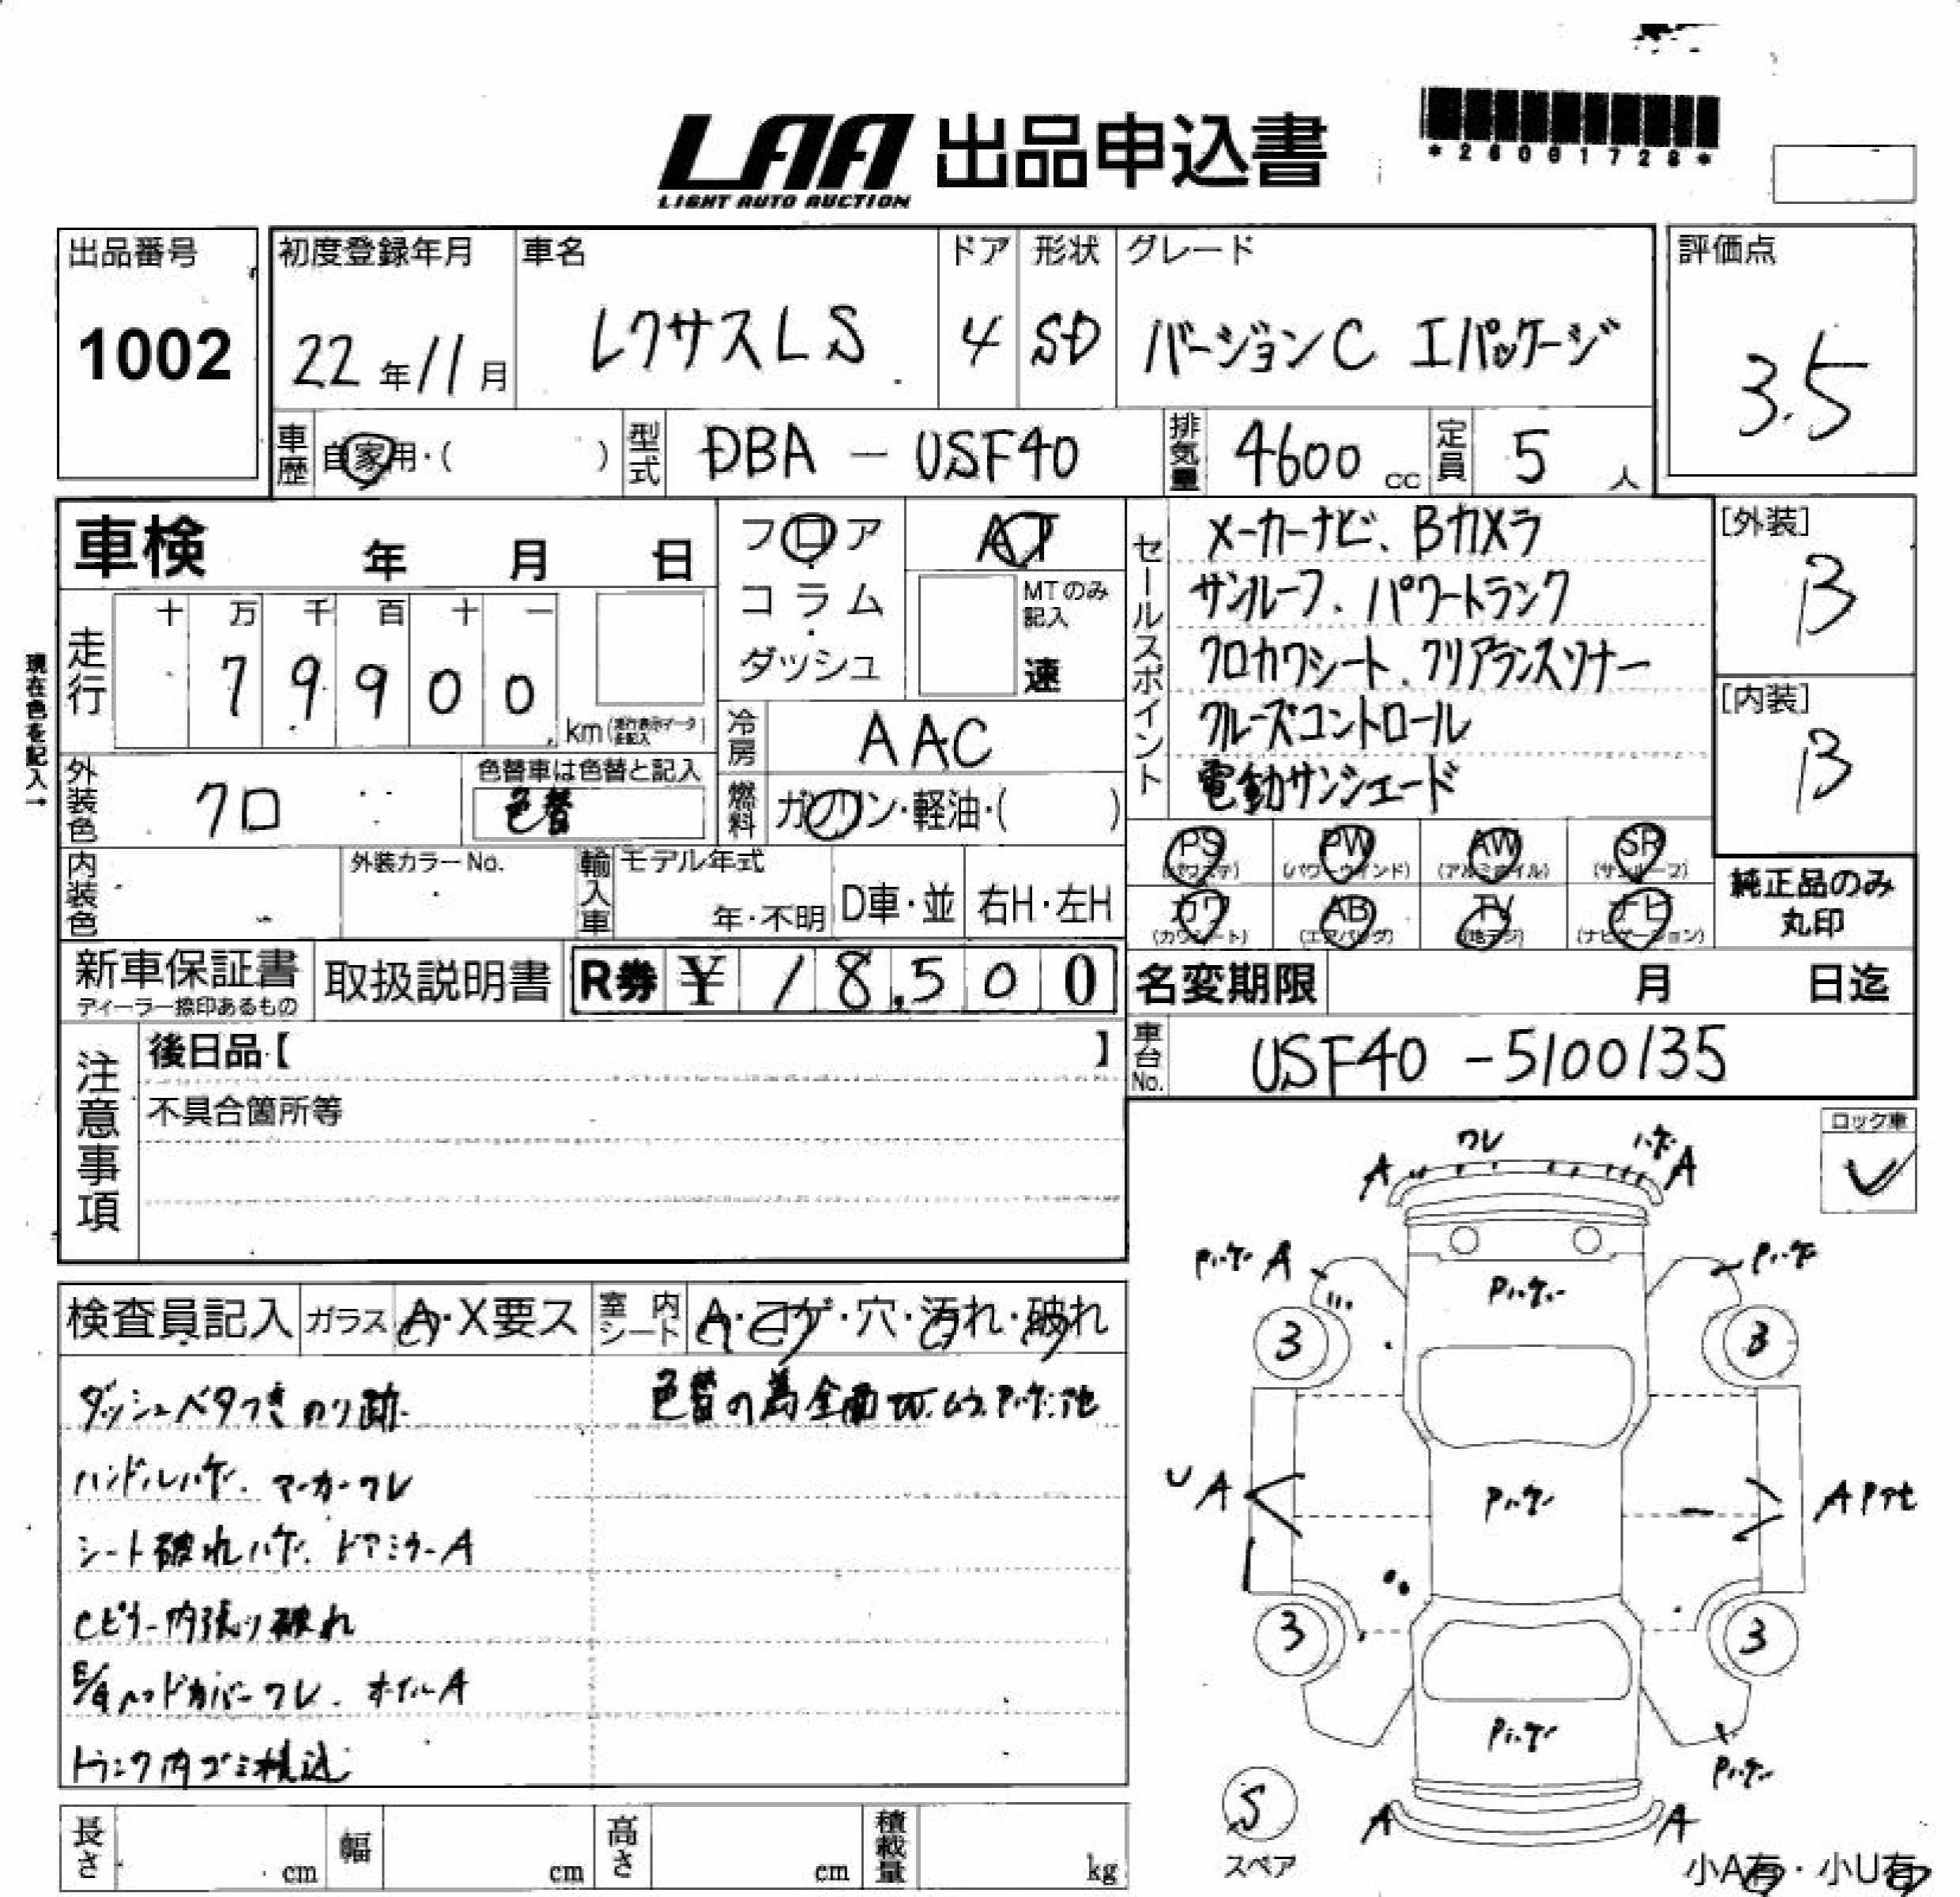 LAA 出品申込書
LIGHT AUTO AUCTION
*26061728*
出品番号
1002
初度登録年月
22年11月
車名
レクサスLS
ドア
4
形状
SD
グレード
バージョンC Iパッケージ
評価点
3.5
車歴
自家用・( )
型式
DBA - USF40
排気量
4600 cc
定員
5 人
車検 年 月 日
フロア・コラム・ダッシュ
AT
MTのみ記入
速
セールスポイント
メーカーナビ、Bカメラ
サンルーフ、パワートランク
クロカワシート、クリアランスソナー
クルーズコントロール
電動サンシェード
[外装]
B
[内装]
B
現在色を記入→
走行
十 万 千 百 十 一
7 9 9 0 0
km
冷房
AAC
外装色
クロ
色替車は色替と記入
色替
燃料
ガソリン・軽油・( )
内装色
外装カラーNo.
輸入車
モデル年式
年・不明
D車・並
右H・左H
PS PW AW SR
(パワステ) (パワーウインド) (アルミホイル) (サンルーフ)
カワ AB TV ナビ
(カワシート) (エアバッグ) (地デジ) (ナビゲーション)
純正品のみ
丸印
新車保証書
ディーラー捺印あるもの
取扱説明書
R券 ¥ 18,500
名変期限 月 日迄
車台No.
USF40 -5100135
注意事項
後日品【 】
不具合箇所等
ロック車
検査員記入
ガラス
A・X要ス
室内シート
A・コゲ・穴・汚れ・破れ
ダッシュベタつきのり跡
色替の為全面
ハンドルハゲ、マーカーワレ
シート破れハゲ、ドアミラーA
Cピラー内張り破れ
ヘッドカバーワレ、ホイルA
トランク内ゴミ
ワレ
ハゲ
A
A
A
3
3
U A
A
3
3
S
スペア
A
A
小A有・小U有
長さ cm
幅 cm
高さ cm
積載量 kg